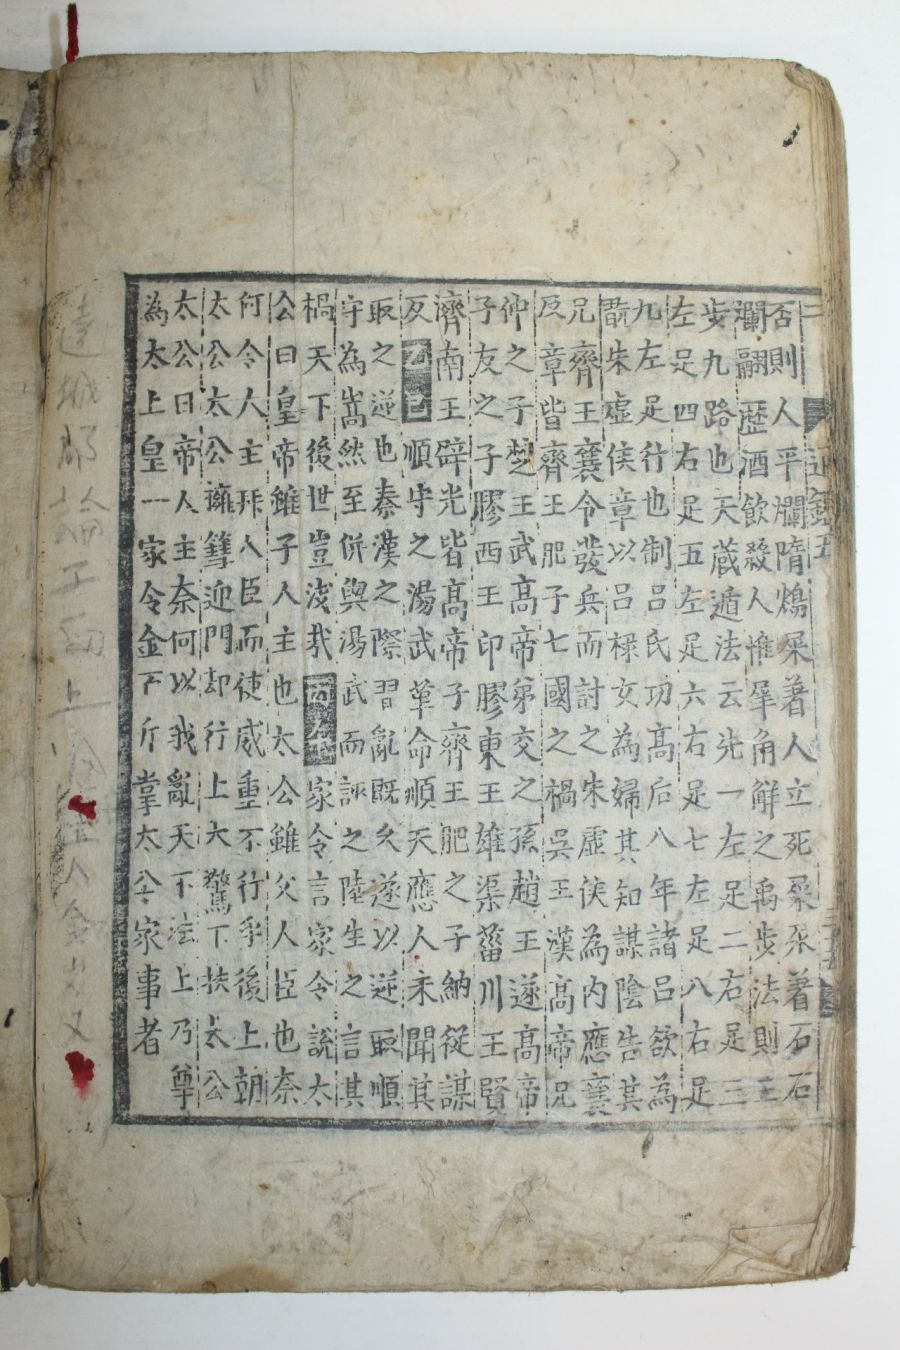 否則人平爛隋煬杲著人立死杲杲著石石
爛翮歷酒飲殺人惟犀角解之禹步法則三
步九路也天蔵遁法云先一左足二右足三
左足四右足五左足六右足七左足八右足
九左足行也制呂氏功高后八年諸呂欲為
朱虛侯章以呂祿女為婦其知謀陰告其
兄齊王襄令發兵而討之朱虛侯為內應襄
反章皆齊王肥子七國之禍吳王漢高帝兄
仲之子楚王武高帝弟交之孫趙王遂高帝
子友之子膠西王印膠東王雄渠菑川王賢
濟南王辟光皆高帝子齊王肥之子納從謀
反順守之湯武革命順天應人未聞其
取之逆也秦漢之際習亂既久遂以逆取順
守為嵩然至併與湯武而誣之陸生之言其
禍天下後世豈淺㢤家令言家令說太
公曰皇帝雖子人主也太公雖父人臣也奈
何令人主拜人臣而使威重不行乎後上朝
太公太公擁篲迎門却行上大驚下扶太公
太公曰帝人主奈何以我亂天下法上乃尊
為太上皇一家令金斤掌太公家事者